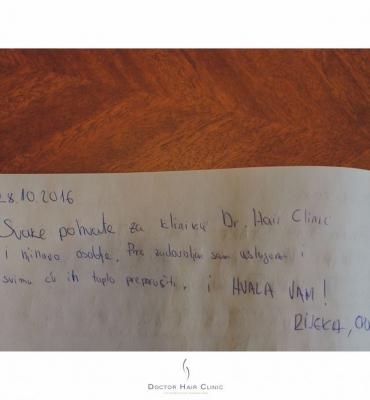 28.10.2016
Svake pohvale za kliniku Dr. Hair Clinic
i njihovo osoblje. Prezadovoljan sam uslugom i
svima ću ih toplo preporučiti. i HVALA VAM!
RIJEKA,
DOCTOR HAIR CLINIC